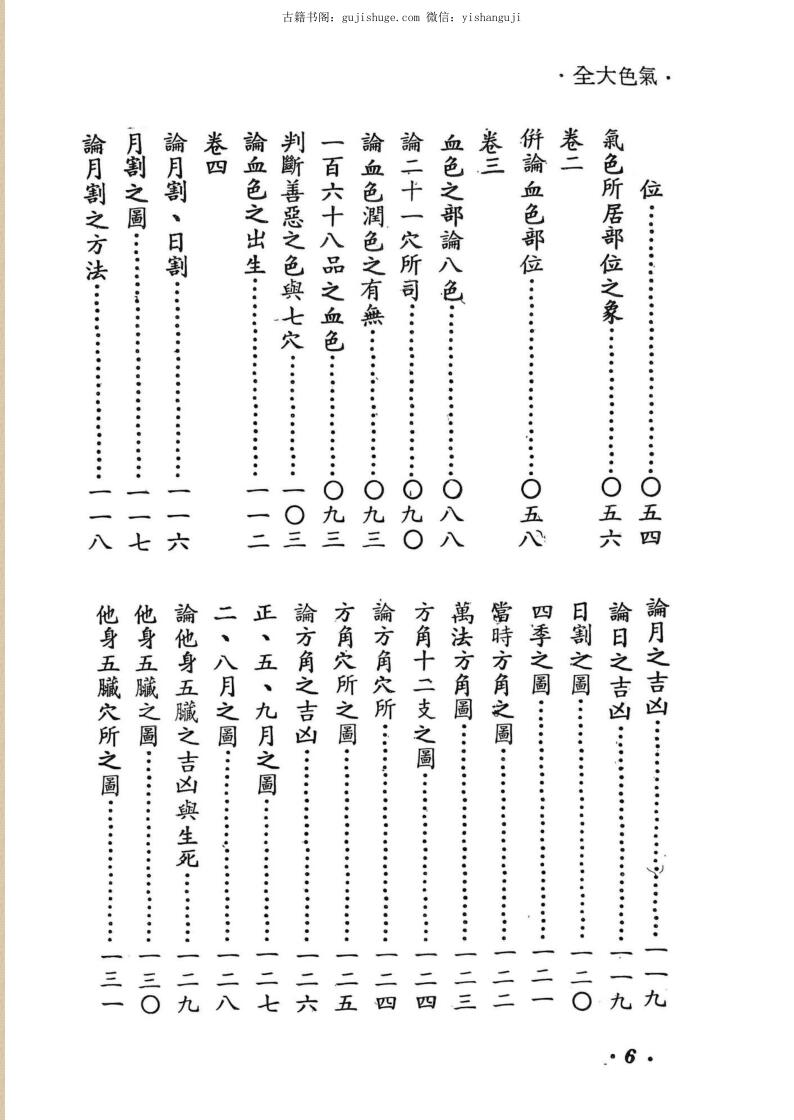 古籍书阁：gujishuge.com 微信：yishanguji
·全大色氣·
位……〇五四
氣色所居部位之象……〇五六
卷二
併論血色部位……〇五八
卷三
血色之部論八色……〇八八
論二十一穴所司……〇九〇
論血色潤色之有無……〇九三
一百六十八品之血色……〇九三
判斷善惡之色與七穴……一〇三
論血色之出生……一一二
卷四
論月割、日割……一一六
月割之圖……一一七
論月割之方法……一一八
論月之吉凶……一一九
論日之吉凶……一一九
日割之圖……一二〇
四季之圖……一二一
當時方角之圖……一二二
萬法方角圖……一二三
方角十二支之圖……一二四
論方角穴所……一二四
方角穴所之圖……一二五
論方角之吉凶……一二六
正、五、九月之圖……一二七
二、八月之圖……一二八
論他身五臟之吉凶與生死……一二九
他身五臟之圖……一三〇
他身五臟穴所之圖……一三一
·6·